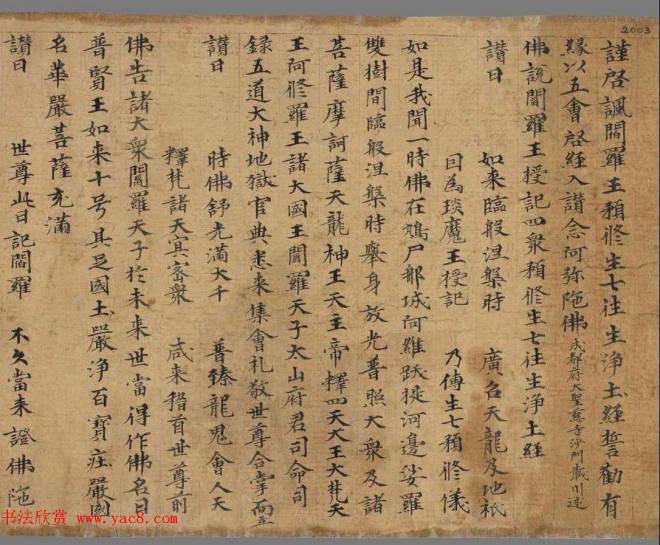 2003
謹啓諷閻羅王預修生七往生淨土經誓勸有
緣以五會啓經入讚念阿弥陁佛 成都府大聖慈寺沙門藏川述
佛說閻羅王授記四衆預修生七往生淨土經
讃曰 如來臨般涅槃時 廣召天龍及地祇
因為琰魔王授記 乃傳生七預修儀
如是我聞一時佛在鳩尸那城阿維跋提河邊娑羅
雙樹間臨般涅槃時舉身放光普照大衆及諸
菩薩摩訶薩天龍神王天主帝釋四天大王大梵天
王阿修羅王諸大國王閻羅天子太山府君司命司
録五道大神地獄官典悉來集會礼敬世尊合掌而立
讃曰 時佛舒光滿大千 普臻龍鬼會人天
釋梵諸天冥密衆 咸来稽首世尊前
佛告諸大衆閻羅天子於未来世當得作佛名曰
普賢王如来十号具足國土嚴淨百寶莊嚴國
名華嚴菩薩充滿
讃曰 世尊此日記閻羅 不久當来證佛陁
书法欣赏 www.yac8.com